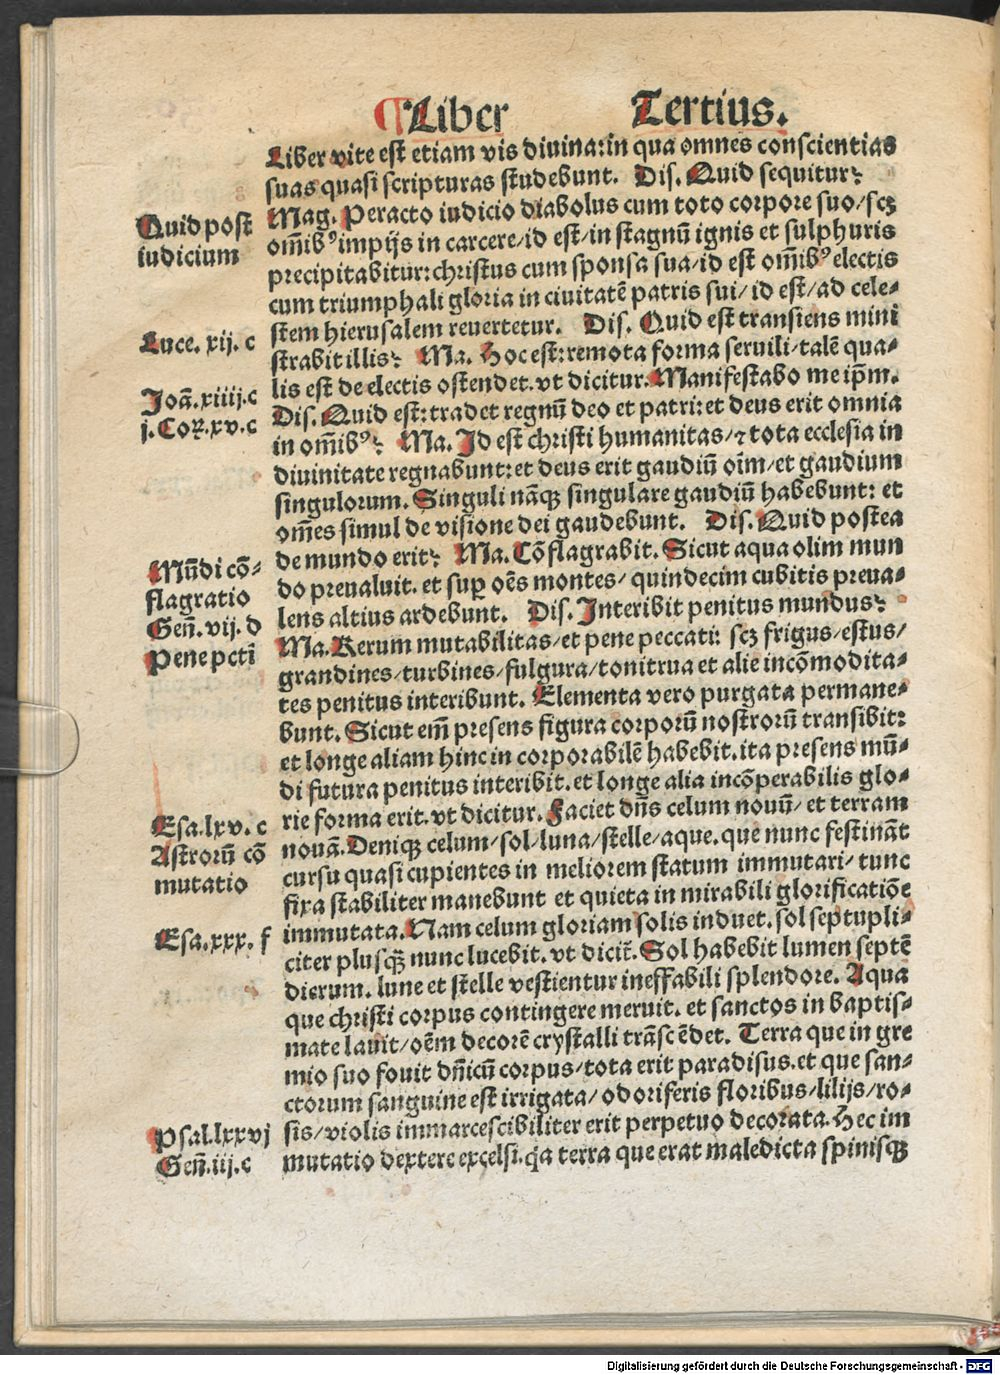 ¶Liber Tertius.
Liber vite est etiam vis diuina: in qua omnes conscientias
suas quasi scripturas studebunt. Dis. Quid sequitur?
Quid post
iudicium
Mag. Peracto iudicio diabolus cum toto corpore suo/ scꝫ
om̄ibꝰ impijs in carcere/ id est/ in stagnū ignis et sulphuris
precipitabitur: christus cum sponsa sua/ id est om̄ibꝰ electis
cum triumphali gloria in ciuitatē patris sui/ id est/ ad cele-
stem hierusalem reuertetur. Dis. Quid est transiens mini
Luce. xij. c
strabit illis? Ma. Hoc est: remota forma seruili/ talē qua-
lis est de electis ostendet. vt dicitur. Manifestabo me ip̄m.
Joā. xiiij. c
j. Coꝝ. xv. c
Dis. Quid est: tradet regnū deo et patri: et deus erit omnia
in om̄ibꝰ? Ma. Id est christi humanitas/ ⁊ tota ecclesia in
diuinitate regnabunt: et deus erit gaudiū oīm/ et gaudium
singulorum. Singuli nāqꝫ singulare gaudiū habebunt: et
om̄es simul de visione dei gaudebunt. Dis. Quid postea
de mundo erit? Ma. Cōflagrabit. Sicut aqua olim mun
Mūdi cō-
flagratio
Geñ. vij. d
Pene pctī
do preualuit. et suꝑ oēs montes/ quindecim cubitis preua-
lens altius ardebunt. Dis. Interibit penitus mundus?
Ma. Rerum mutabilitas/ et pene peccati: scꝫ frigus/ estus/
grandines/ turbines/ fulgura/ tonitrua et alie incōmodita-
tes penitus interibunt. Elementa vero purgata permane-
bunt. Sicut em̄ presens figura corporū nostrorū transibit:
et longe aliam hinc in corporabilē habebit. ita presens mū-
di futura penitus interibit. et longe alia incōperabilis glo-
rie forma erit. vt dicitur. Faciet dn̄s celum nouū/ et terram
Esa. lxv. c
Astrorū cō
mutatio
nouā. Deniqꝫ celum/ sol/ luna/ stelle/ aque. que nunc festināt
cursu quasi cupientes in meliorem statum immutari/ tunc
fixa stabiliter manebunt et quieta in mirabili glorificatiōe
Esa. xxx. f
immutata. Nam celum gloriam solis induet. sol septupli-
citer plusqꝫ̄ nunc lucebit. vt dicit̄. Sol habebit lumen septē
dierum. lune et stelle vestientur ineffabili splendore. Aqua
que christi corpus contingere meruit. et sanctos in baptis-
mate lauit/ oēm decorē crystalli trāscēdet. Terra que in gre
mio suo fouit dn̄icū corpus/ tota erit paradisus. et que san-
ctorum sanguine est irrigata/ odoriferis floribus/ lilijs/ ro-
Psal. lxxvj
Geñ. iij. c
sis/ violis immarcescibiliter erit perpetuo decorata. Hec im
mutatio dextere excelsi. q̄a terra que erat maledicta spinisqꝫ
Digitalisierung gefördert durch die Deutsche Forschungsgemeinschaft - DFG